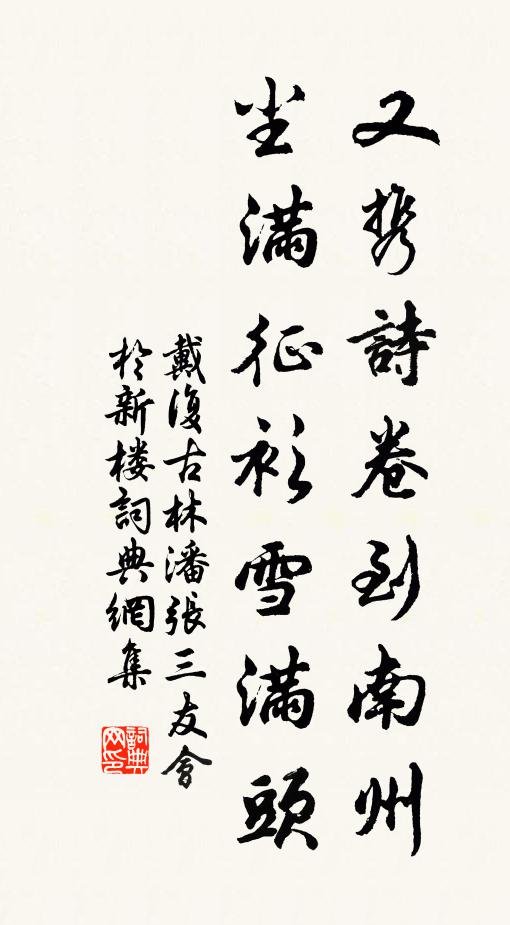 又携詩卷到南州
尘满征衫雪满頭
戴復古林潘張三友會
於新楼詞典網集
詞典网印